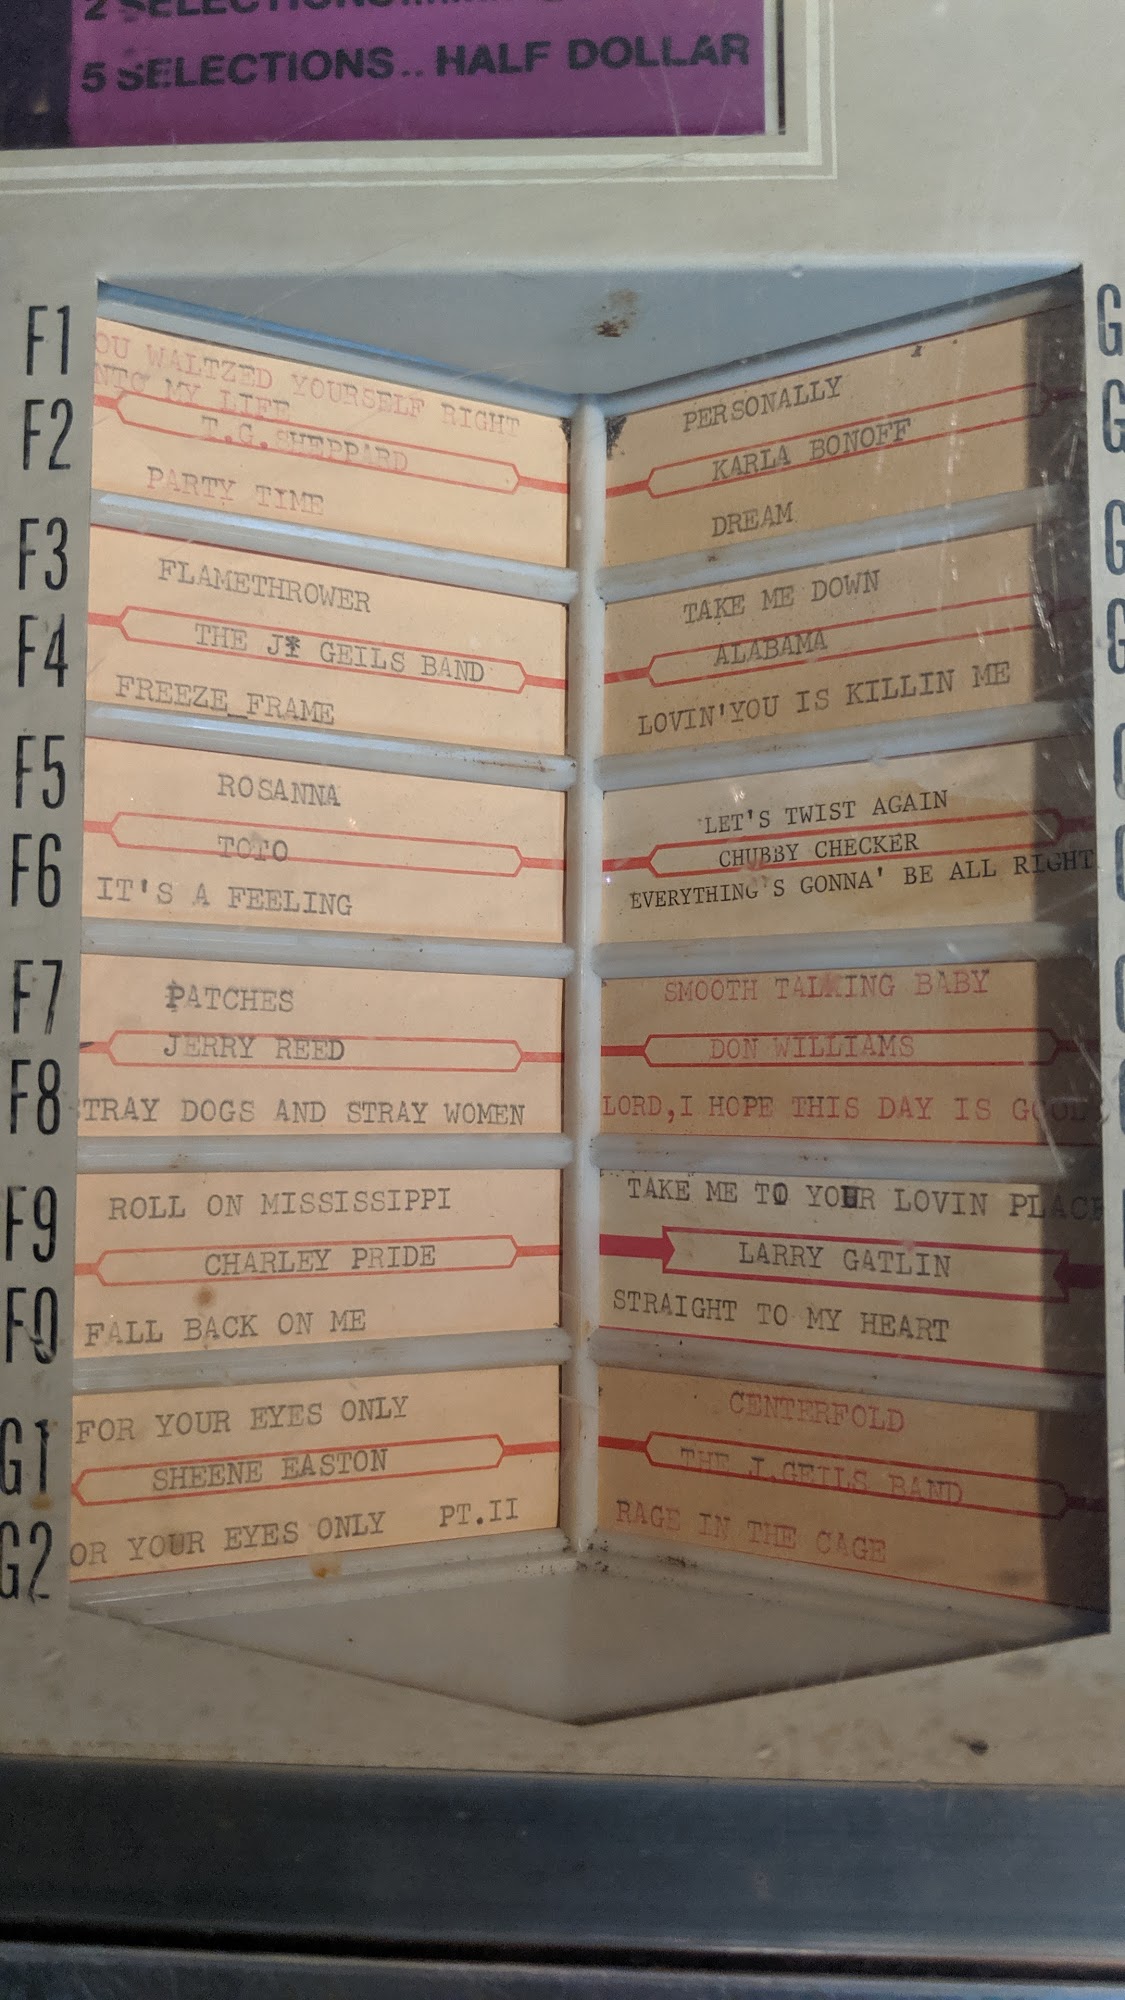 2 SELECTIONS
5 SELECTIONS.. HALF DOLLAR
F1
OU WALTZED YOURSELF RIGHT
NTO MY LIFE
F2
T.G.SHEPPARD
PARTY TIME
F3
FLAMETHROWER
F4
THE J* GEILS BAND
FREEZE_FRAME
F5
ROSANNA
F6
TOTO
IT'S A FEELING
F7
PATCHES
JERRY REED
F8
TRAY DOGS AND STRAY WOMEN
F9
ROLL ON MISSISSIPPI
CHARLEY PRIDE
F0
FALL BACK ON ME
G1
FOR YOUR EYES ONLY
SHEENE EASTON
G2
OR YOUR EYES ONLY PT.II
G
PERSONALLY
G
KARLA BONOFF
DREAM
G
TAKE ME DOWN
G
ALABAMA
LOVIN'YOU IS KILLIN ME
LET'S TWIST AGAIN
CHUBBY CHECKER
EVERYTHING'S GONNA' BE ALL RIGHT
SMOOTH TALKING BABY
DON WILLIAMS
LORD,I HOPE THIS DAY IS GOOD
TAKE ME TO YOUR LOVIN PLACE
LARRY GATLIN
STRAIGHT TO MY HEART
CENTERFOLD
THE J.GEILS BAND
RAGE IN THE CAGE